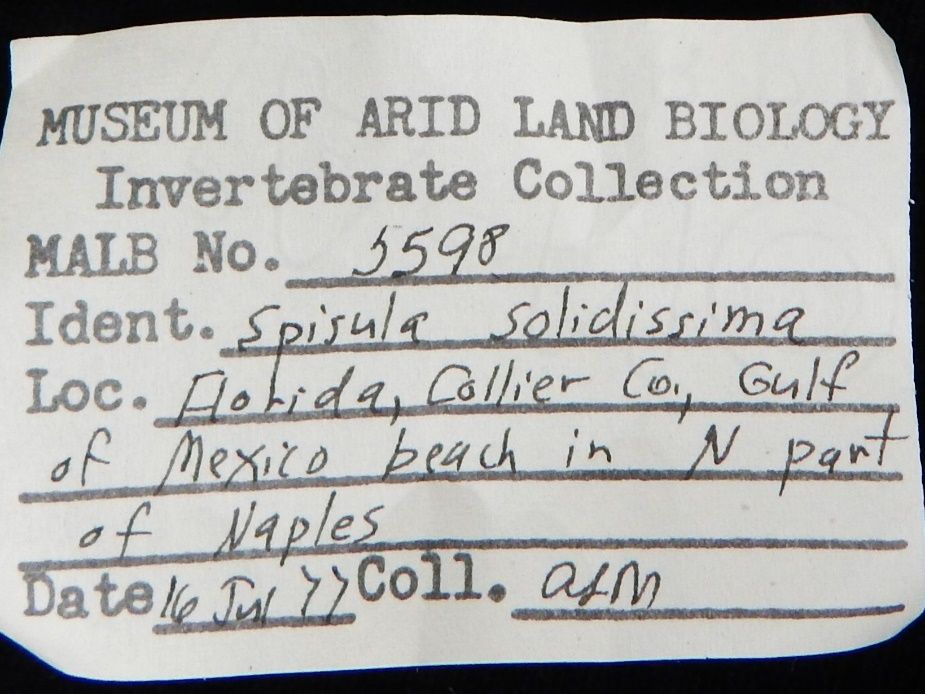 MUSEUM OF ARID LAND BIOLOGY
Invertebrate Collection
MALB No. 5598
Ident. Spisula solidissima
Loc. Florida, Collier Co., Gulf
of Mexico beach in N part
of Naples
Date 16 Jul 77 Coll. ALM